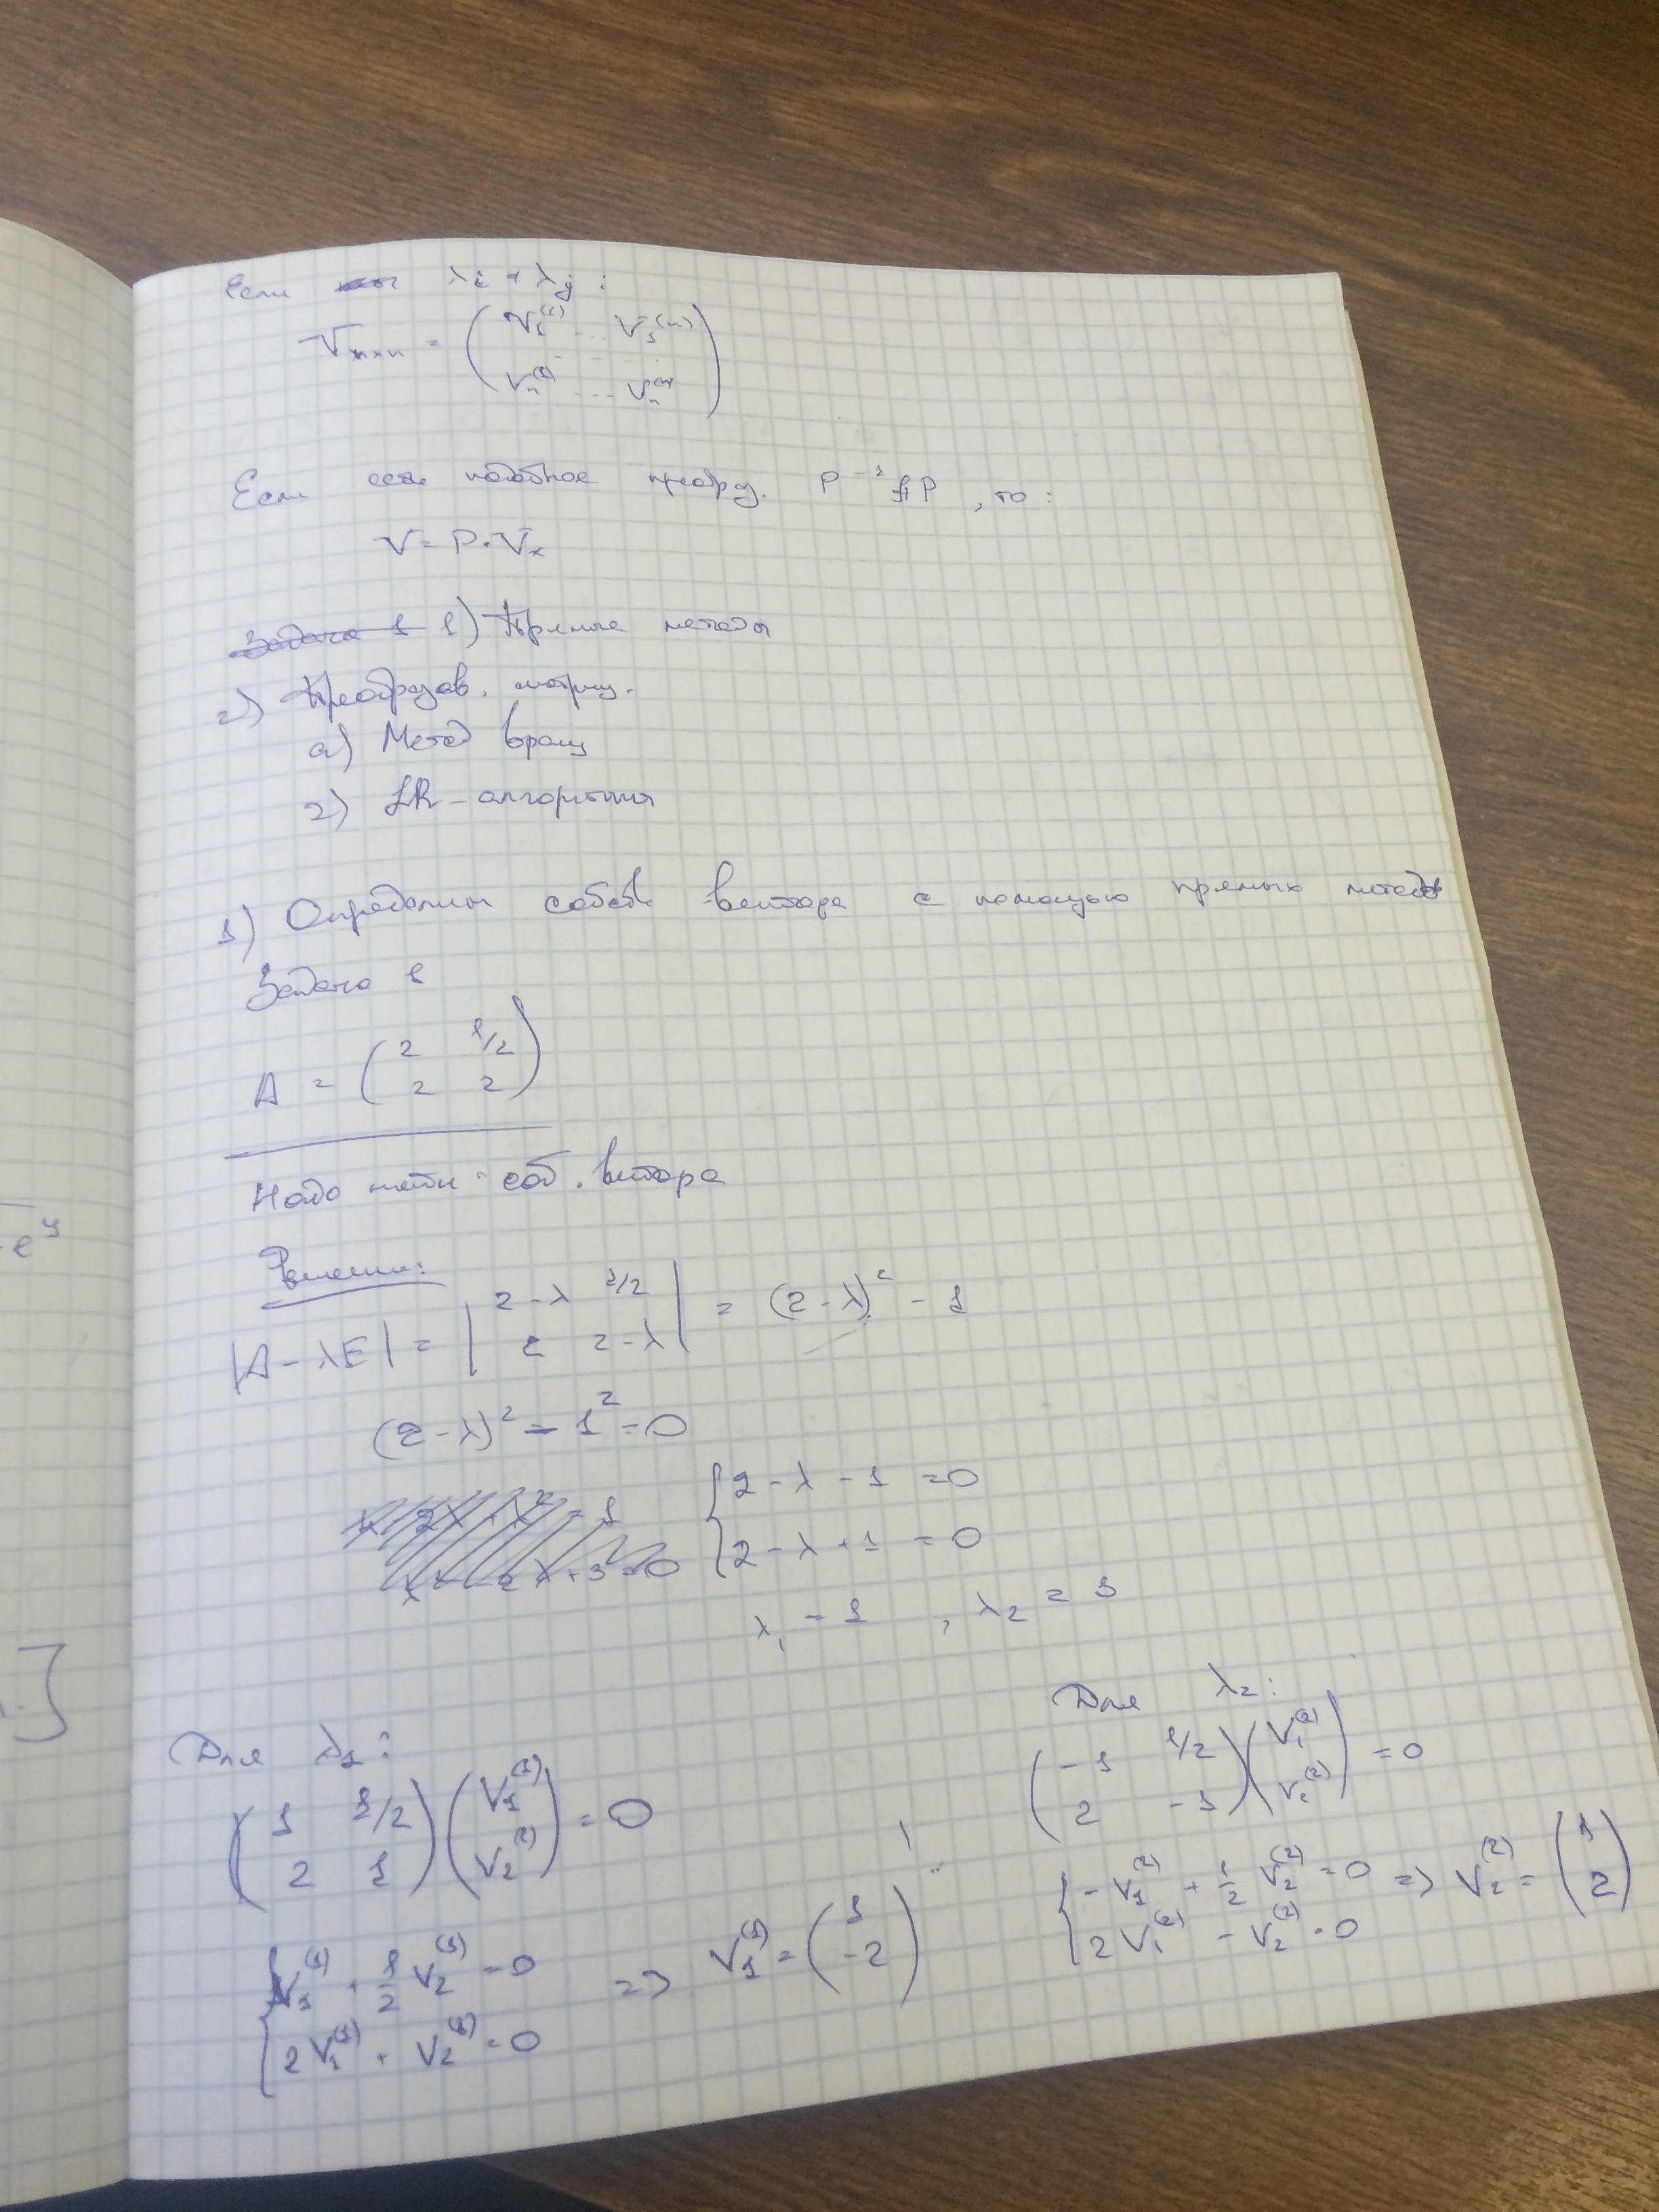 Если λi ≠ λj :
Vn×n = ( V1^(1) ... V1^(n)
. . . .
Vn^(1) ... Vn^(n) )
Если есть подобное преобр. P^-1 A P , то :
V = P · Vx
Задача 1 1) Прямые методы
2) Преобразов. матриц.
а) Метод вращ
2) LR - алгоритм
1) Определим собств вектора с помощью прямых методов
Задача 1
A = ( 2 1/2
2 2 )
Надо найти соб. вектора
Решение:
|A - λE| = | 2-λ 1/2
2 2-λ | = (2-λ)^2 - 1
(2-λ)^2 - 1^2 = 0
{ 2 - λ - 1 = 0
2 - λ + 1 = 0
λ1 = 1 , λ2 = 3
Для λ1 :
( 1 1/2
2 1 ) ( V1^(1)
V2^(1) ) = 0
{ V1^(1) + 1/2 V2^(1) = 0
2 V1^(1) + V2^(1) = 0
=> V1^(1) = ( 1
-2 )
Для λ2 :
( -1 1/2
2 -1 ) ( V1^(2)
V2^(2) ) = 0
{ - V1^(2) + 1/2 V2^(2) = 0
2 V1^(2) - V2^(2) = 0
=> V2^(2) = ( 1
2 )